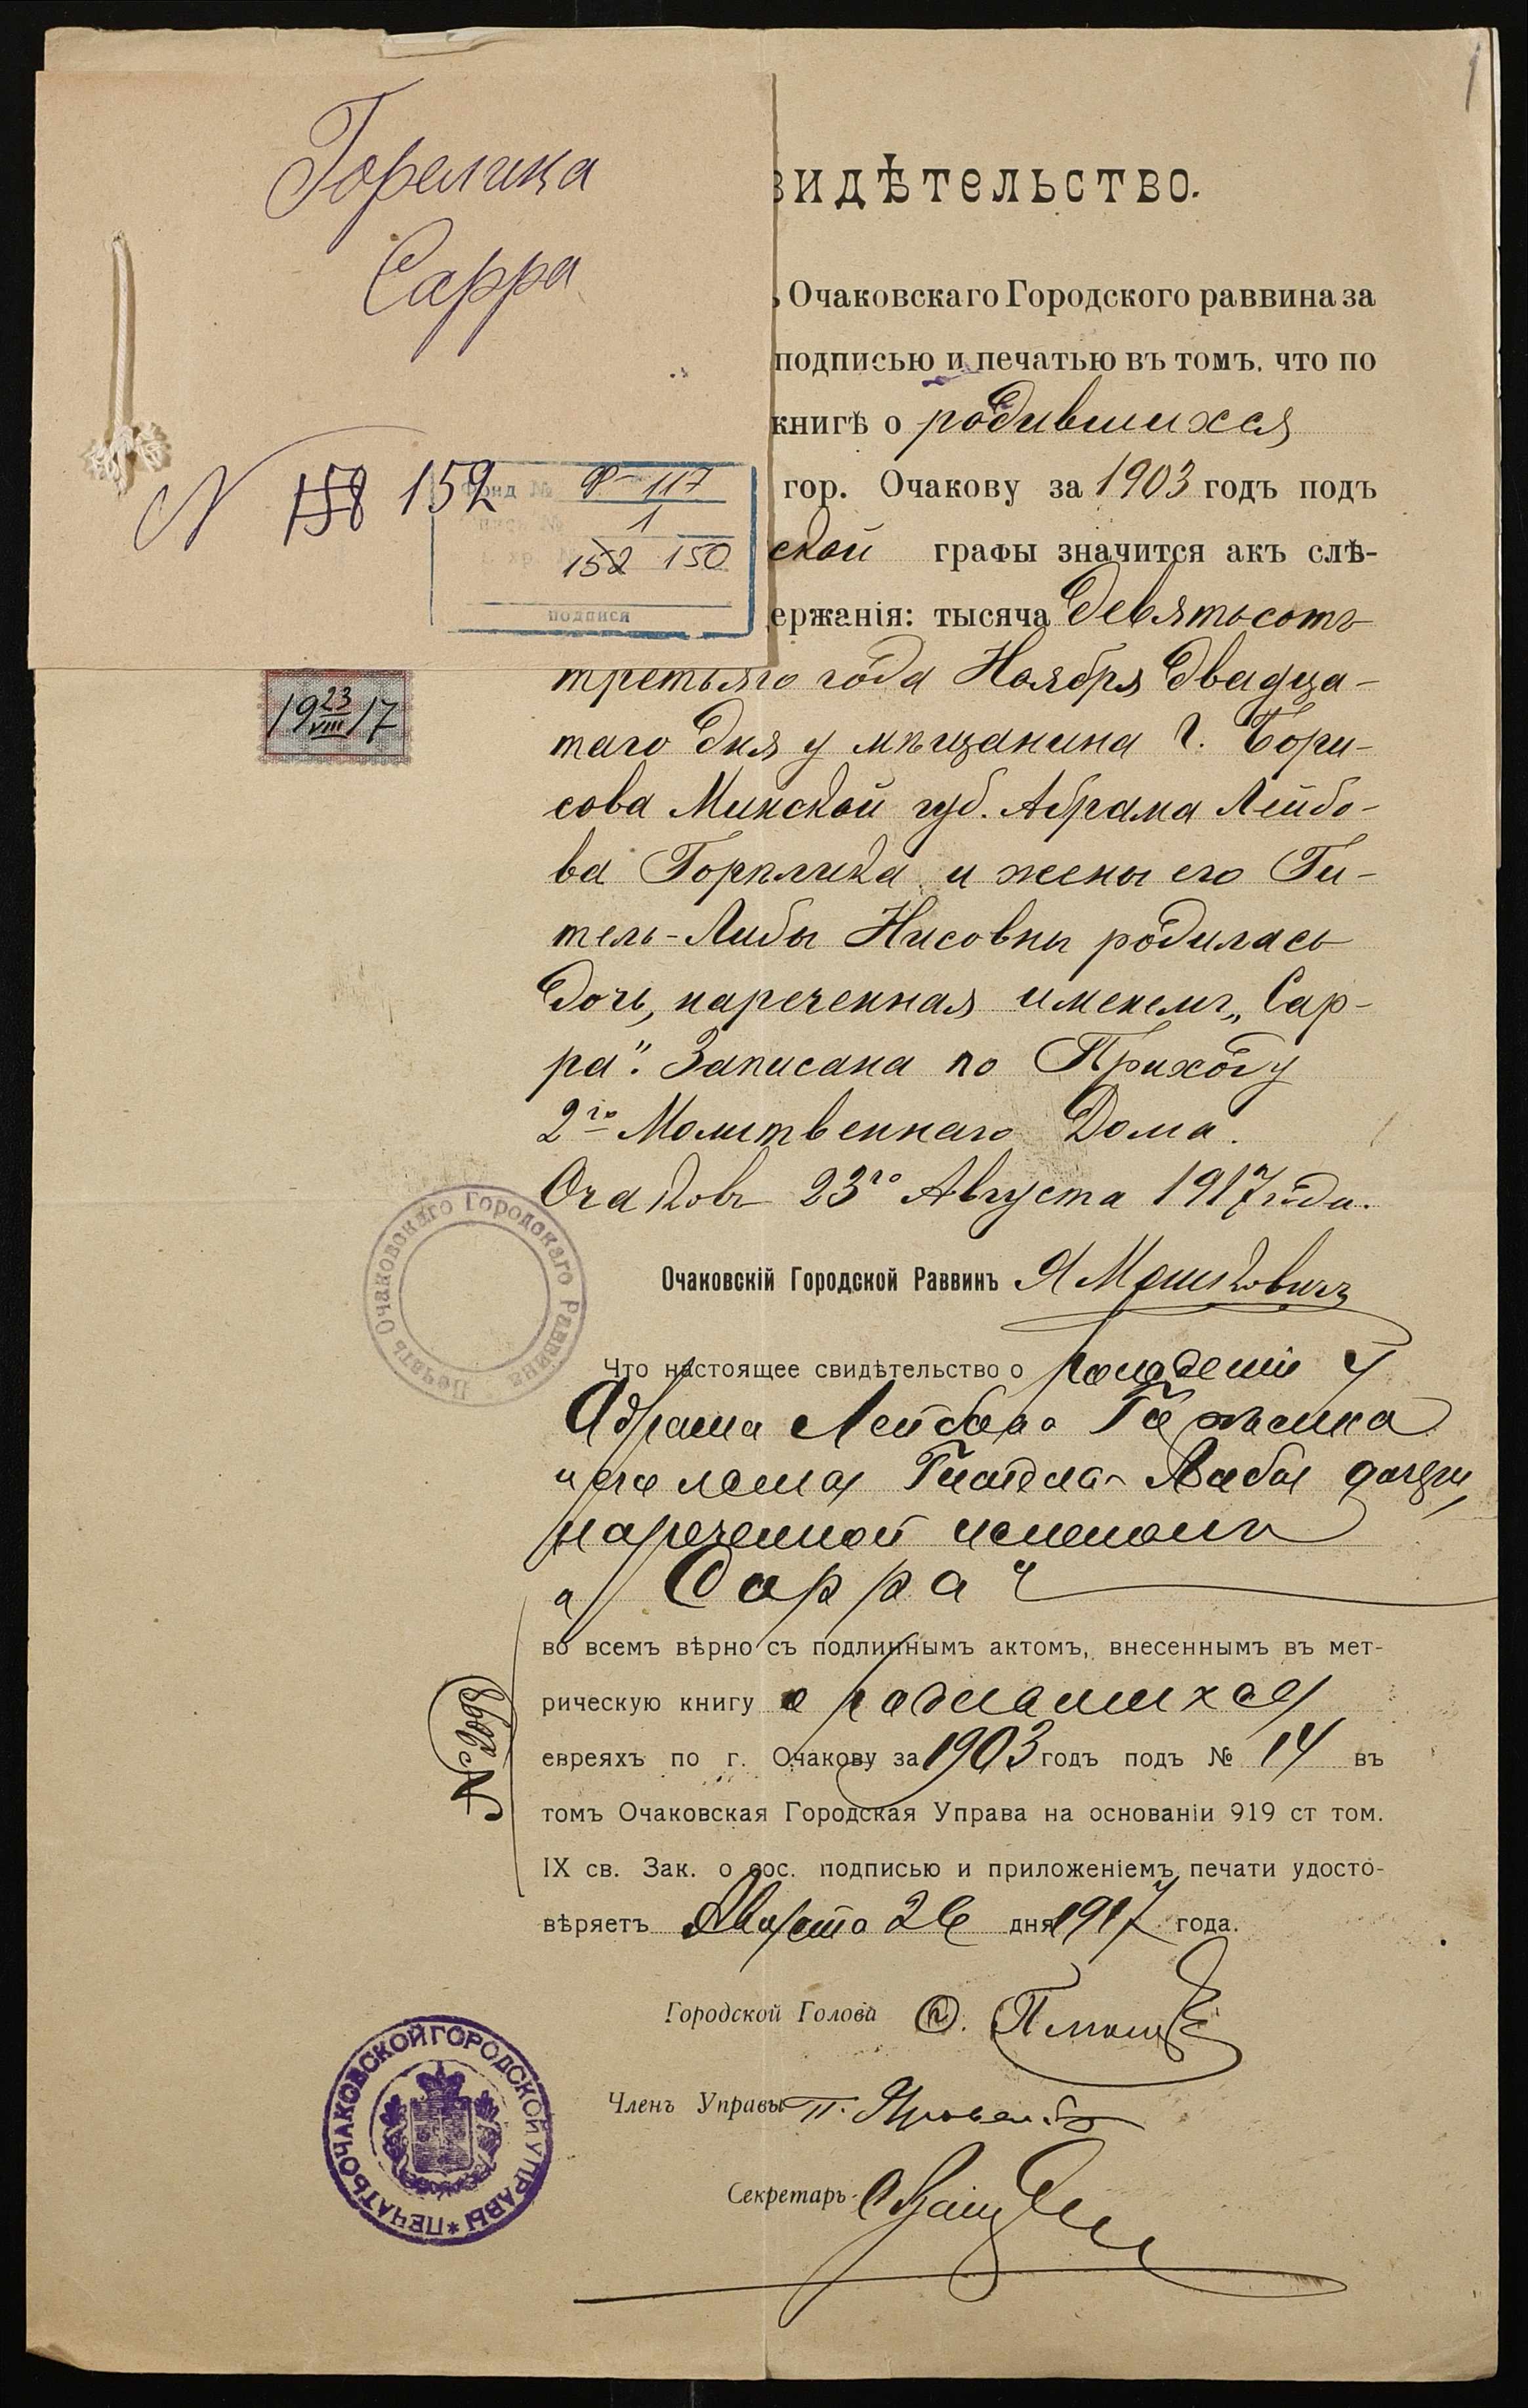 1
Горелика
Сарра
N 158 152
Фонд № Ф-117
1
152 150
подпися
видѣтельство.
ъ Очаковскаго Городского раввина за
подписью и печатью въ томъ, что по
книгѣ о родившихся
гор. Очакову за 1903 годъ подъ
ской графы значится акъ слѣ-
ержанія: тысяча девятьсотъ
третьяго года Ноября двадца-
таго дня у мѣщанина г. Бори-
сова Минской губ. Абрама Лейбо-
ва Горѣлика и жены его Ги-
тель-Либы Нисовны родилась
дочь, нареченная именемъ „Сар-
ра". Записана по Приходу
2го Молитвеннаго Дома.
Очаковъ 23го Августа 1917 года.
19 23/VIII 17
Очаковскій Городской Раввинъ Я Мошковичъ
Печать Очаковскаго Городскаго Раввина
Что настоящее свидѣтельство о рожденіи у
Абрама Лейбова Горѣлика
и его жены Гитель-Либы дочери,
нареченной именемъ
„Сарра"
во всемъ вѣрно съ подлиннымъ актомъ, внесеннымъ въ мет-
рическую книгу о родившихся
евреяхъ по г. Очакову за 1903 годъ подъ № 14 въ
томъ Очаковская Городская Управа на основаніи 919 ст том.
IX св. Зак. о сос. подписью и приложеніемъ печати удосто-
вѣряетъ Августа 26 дня 1917 года.
Городской Голова
Членъ Управы П.
Секретарь
ПЕЧАТЬ ОЧАКОВСКОЙ ГОРОДСКОЙ УПРАВЫ *